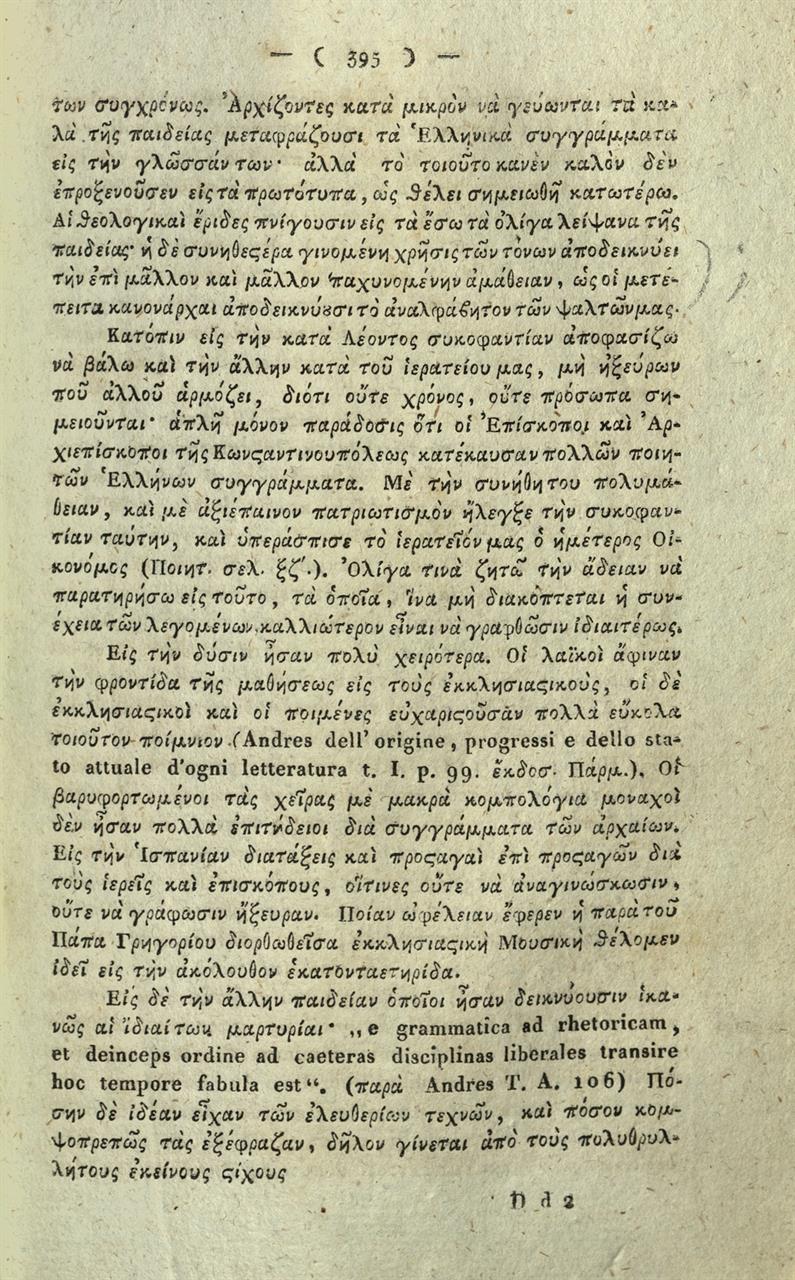 — ( 395 ) —
των συγχρόνως. Ἀρχίζοντες κατὰ μικρὸν νὰ γεύωνται τὰ κα-
λὰ τῆς παιδείας μεταφράζουσι τὰ Ἑλληνικὰ συγγράμματα
εἰς τὴν γλῶσσάν των· ἀλλὰ τὸ τοιοῦτο κανὲν καλὸν δὲν
ἐπροξενοῦσεν εἰς τὰ πρωτότυπα, ὡς θέλει σημειωθῆ κατωτέρω.
Αἱ θεολογικαὶ ἔριδες πνίγουσιν εἰς τὰ ἔσω τὰ ὀλίγα λείψανα τῆς
παιδείας· ἡ δὲ συνηθεϛέρα γινομένη χρῆσις τῶν τόνων ἀποδεικνύει
τὴν ἐπὶ μᾶλλον καὶ μᾶλλον παχυνομένην ἀμάθειαν, ὡς οἱ μετέ-
πειτα κανονάρχαι ἀποδεικνύȣσι τὸ ἀναλφάβητον τῶν ψαλτῶν μας.
Κατόπιν εἰς τὴν κατὰ Λέοντος συκοφαντίαν ἀποφασίζω
νὰ βάλω καὶ τὴν ἄλλην κατὰ τοῦ ἱερατείου μας, μὴ ἠξεύρων
ποῦ ἀλλοῦ ἁρμόζει, διότι οὔτε χρόνος, οὔτε πρόσωπα ση-
μειοῦνται· ἁπλῆ μόνον παράδοσις ὅτι οἱ Ἐπίσκοποι καὶ Ἀρ-
χιεπίσκοποι τῆς Κωνϛαντινουπόλεως κατέκαυσαν πολλῶν ποιη-
τῶν Ἑλλήνων συγγράμματα. Μὲ τὴν συνήθη του πολυμά-
θειαν, καὶ μὲ ἀξιέπαινον πατριωτισμὸν ἤλεγξε τὴν συκοφαν-
τίαν ταύτην, καὶ ὑπεράσπισε τὸ ἱερατεῖόν μας ὁ ἡμέτερος Οἰ-
κονόμος (Ποιητ. σελ. ξζʹ.). Ὀλίγα τινὰ ζητῶ τὴν ἄδειαν νὰ
παρατηρήσω εἰς τοῦτο, τὰ ὁποῖα, ἵνα μὴ διακόπτεται ἡ συν-
έχεια τῶν λεγομένων, καλλιώτερον εἶναι νὰ γραφθῶσιν ἰδιαιτέρως.
Εἰς τὴν δύσιν ἦσαν πολὺ χειρότερα. Οἱ λαϊκοὶ ἄφιναν
τὴν φροντίδα τῆς μαθήσεως εἰς τοὺς ἐκκλησιαϛικούς, οἱ δὲ
ἐκκλησιαϛικοὶ καὶ οἱ ποιμένες εὐχαριϛοῦσαν πολλὰ εὔκολα
τοιοῦτον ποίμνιον (Andres dell' origine, progressi e dello sta-
to attuale d'ogni letteratura t. I. p. 99. ἔκδοσ. Πάρμ.). Οἱ
βαρυφορτωμένοι τὰς χεῖρας μὲ μακρὰ κομπολόγια μοναχοὶ
δὲν ἦσαν πολλὰ ἐπιτήδειοι διὰ συγγράμματα τῶν ἀρχαίων.
Εἰς τὴν Ἱσπανίαν διατάξεις καὶ προϛαγαὶ ἐπὶ προϛαγῶν διὰ
τοὺς ἱερεῖς καὶ ἐπισκόπους, οἵτινες οὔτε νὰ ἀναγινώσκωσιν,
οὔτε νὰ γράφωσιν ἤξευραν. Ποίαν ὠφέλειαν ἔφερεν ἡ παρὰ τοῦ
Πάπα Γρηγορίου διορθωθεῖσα ἐκκλησιαϛικὴ Μουσικὴ θέλομεν
ἰδεῖ εἰς τὴν ἀκόλουθον ἑκατονταετηρίδα.
Εἰς δὲ τὴν ἄλλην παιδείαν ὁποῖοι ἦσαν δεικνύουσιν ἱκα-
νῶς αἱ ἴδιαί των μαρτυρίαι· „e grammatica ad rhetoricam,
et deinceps ordine ad caeteras disciplinas liberales transire
hoc tempore fabula est“. (παρὰ Andres T. A. 106) Πό-
σην δὲ ἰδέαν εἶχαν τῶν ἐλευθερίων τεχνῶν, καὶ πόσον κομ-
ψοπρεπῶς τὰς ἐξέφραζαν, δῆλον γίνεται ἀπὸ τοὺς πολυθρυλ-
λήτους ἐκείνους ϛίχους
D d 2